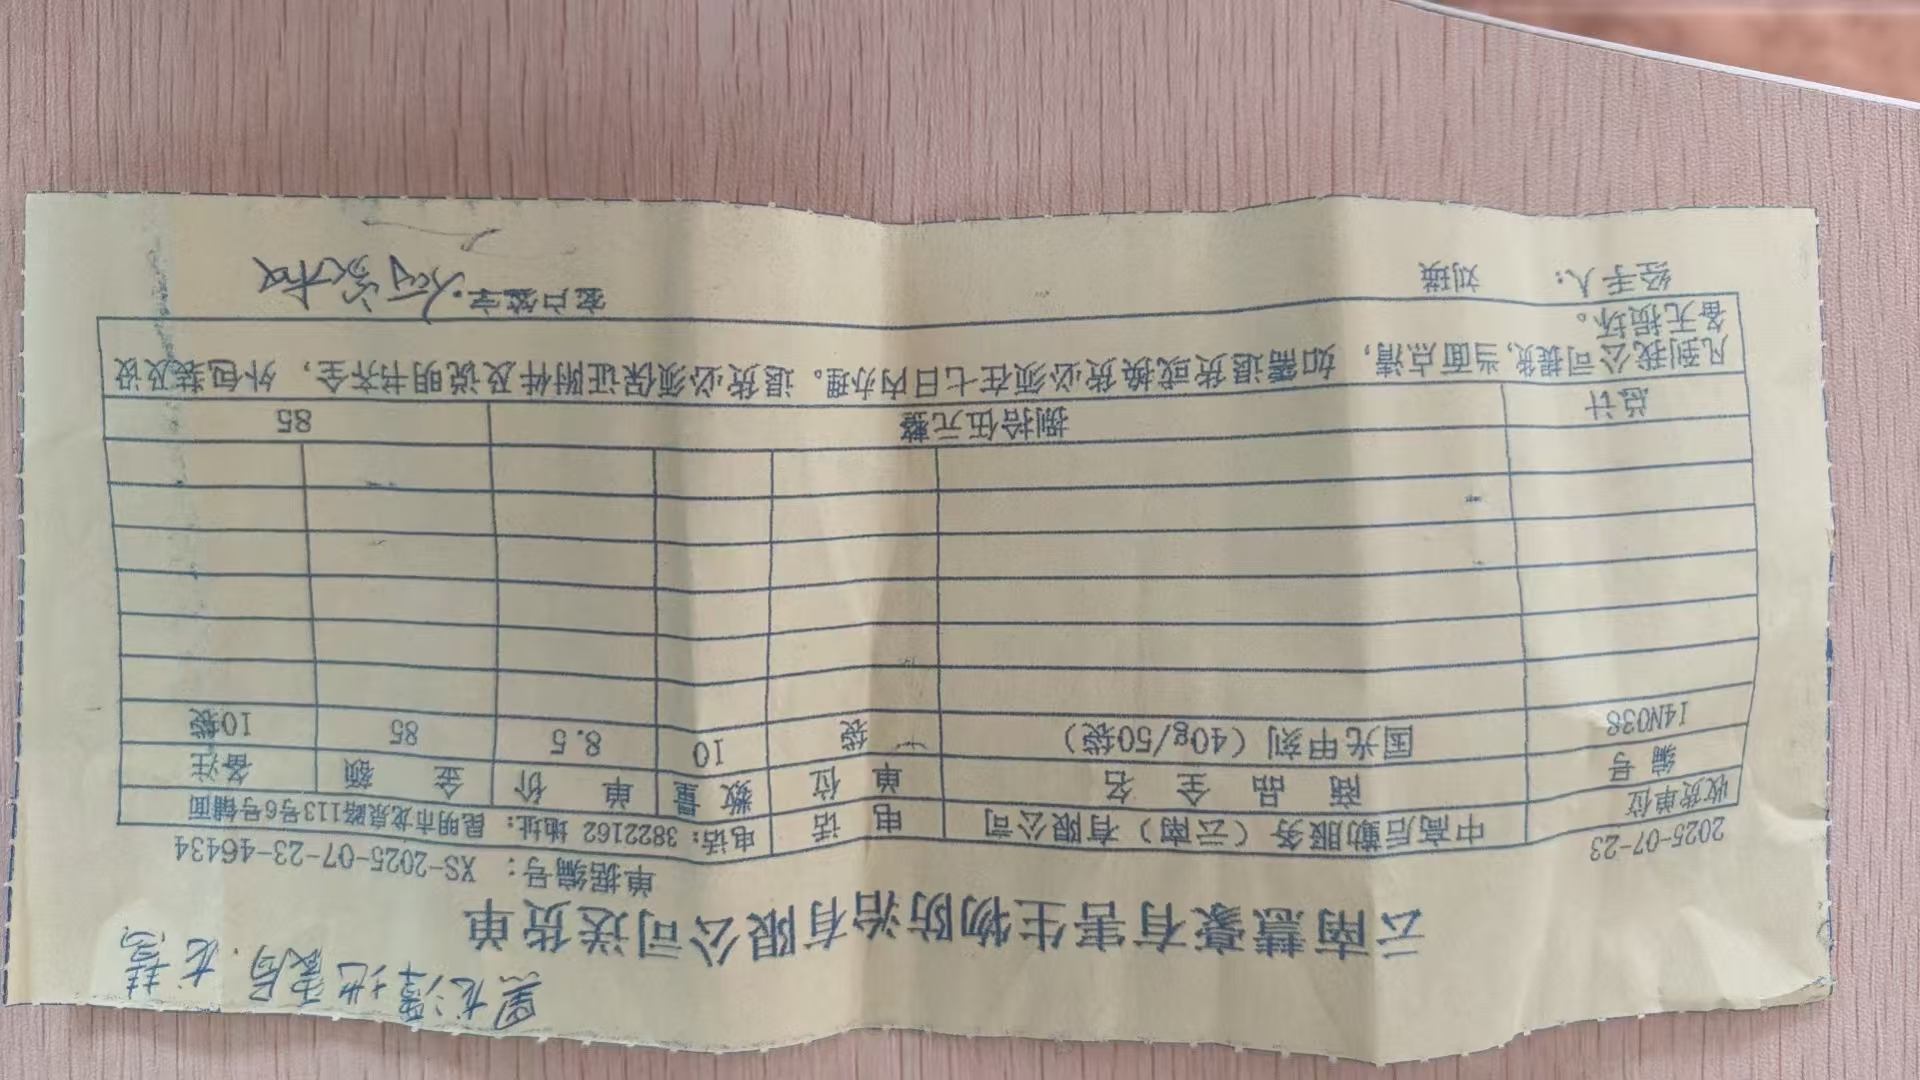 黑龙潭地震局.龙慧
云南慧豪有害生物防治有限公司送货单
单据编号： XS-2025-07-23-46434
2025-07-23
收货单位 中高后勤服务（云南）有限公司 电 话 电话：3822162 地址：昆明市龙泉路113号6号铺面
编 号 商 品 全 名 单 位 数 量 单 价 金 额 备注
14N038 国光甲刻（40g/50袋） 袋 10 8.5 85 10袋
总计 捌拾伍元整 85
凡到我公司提货，当面点清，如需退货或换货必须在七日内办理。退货必须保证附件及说明书齐全，外包装及设
备无损坏。
经手人： 刘瑛 客户签字：